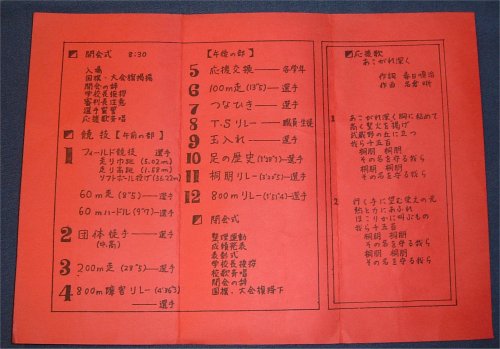 開会式 8:30
入場
国旗・大会旗掲揚
開会の辞
学校長挨拶
審判長注意
選手宣誓
応援歌斉唱
競技【午前の部】
1 フィールド競技 選手
走り巾跳 (5.02m)
走り高跳 (1.58m)
ソフトボール投げ
60m走 (8"5)―選手
60mハードル (9"7)―選手
2 団体徒手――選手
3 200m走 (28"5)―選手
4 800m障害リレー
――選手
【午後の部】
5 応援交換――各学年
6 100m走 (13"5)―選手
7 つなひき――選手
8 T.Sリレー――職員・生徒
9 玉入れ――選手
10 足の歴史―選手
11 桐朋リレー―選手
12 800mリレー―選手
閉会式
整理運動
成績発表
表彰式
学校長挨拶
校歌斉唱
閉会の辞
国旗、大会旗降下
応援歌
あこがれ深く
作詞
作曲
1 あこがれ深く胸に秘めて
高く聖火を掲げ
武蔵野の丘に立つ
我ら千五百
桐朋 桐朋
その名を守る我ら
桐朋 桐朋
その名を守る我ら
2 行く手に望む栄えの光
熱と力にあふれ
ほこりかに叫ぶもの
我ら千五百
桐朋 桐朋
その名を守る我ら
桐朋 桐朋
その名を守る我ら